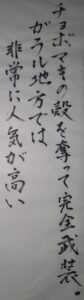 チョボマキの殻を奪って完全武装。
ガラル地方では
非常に人気が高い